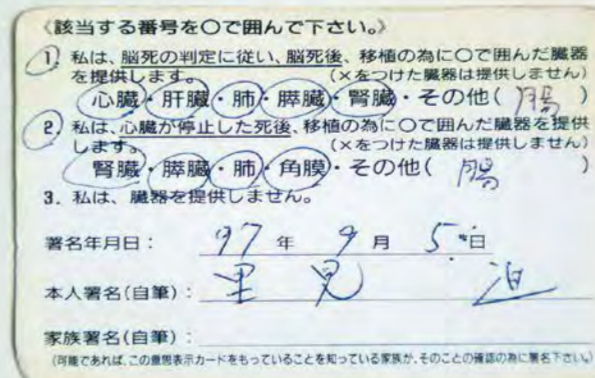 《該当する番号を○で囲んで下さい。》
1. 私は、脳死の判定に従い、脳死後、移植の為に○で囲んだ臓器
を提供します。 (×をつけた臓器は提供しません)
心臓・肝臓・肺・膵臓・腎臓・その他( 腸 )
2. 私は、心臓が停止した死後、移植の為に○で囲んだ臓器を提供
します。 (×をつけた臓器は提供しません)
腎臓・膵臓・肺・角膜・その他( 腸 )
3. 私は、臓器を提供しません。
署名年月日: 97 年 9 月 5 日
本人署名(自筆): 里見
家族署名(自筆):
(可能であれば、この意思表示カードをもっていることを知っている家族が、そのことの確認の為に署名下さい。)